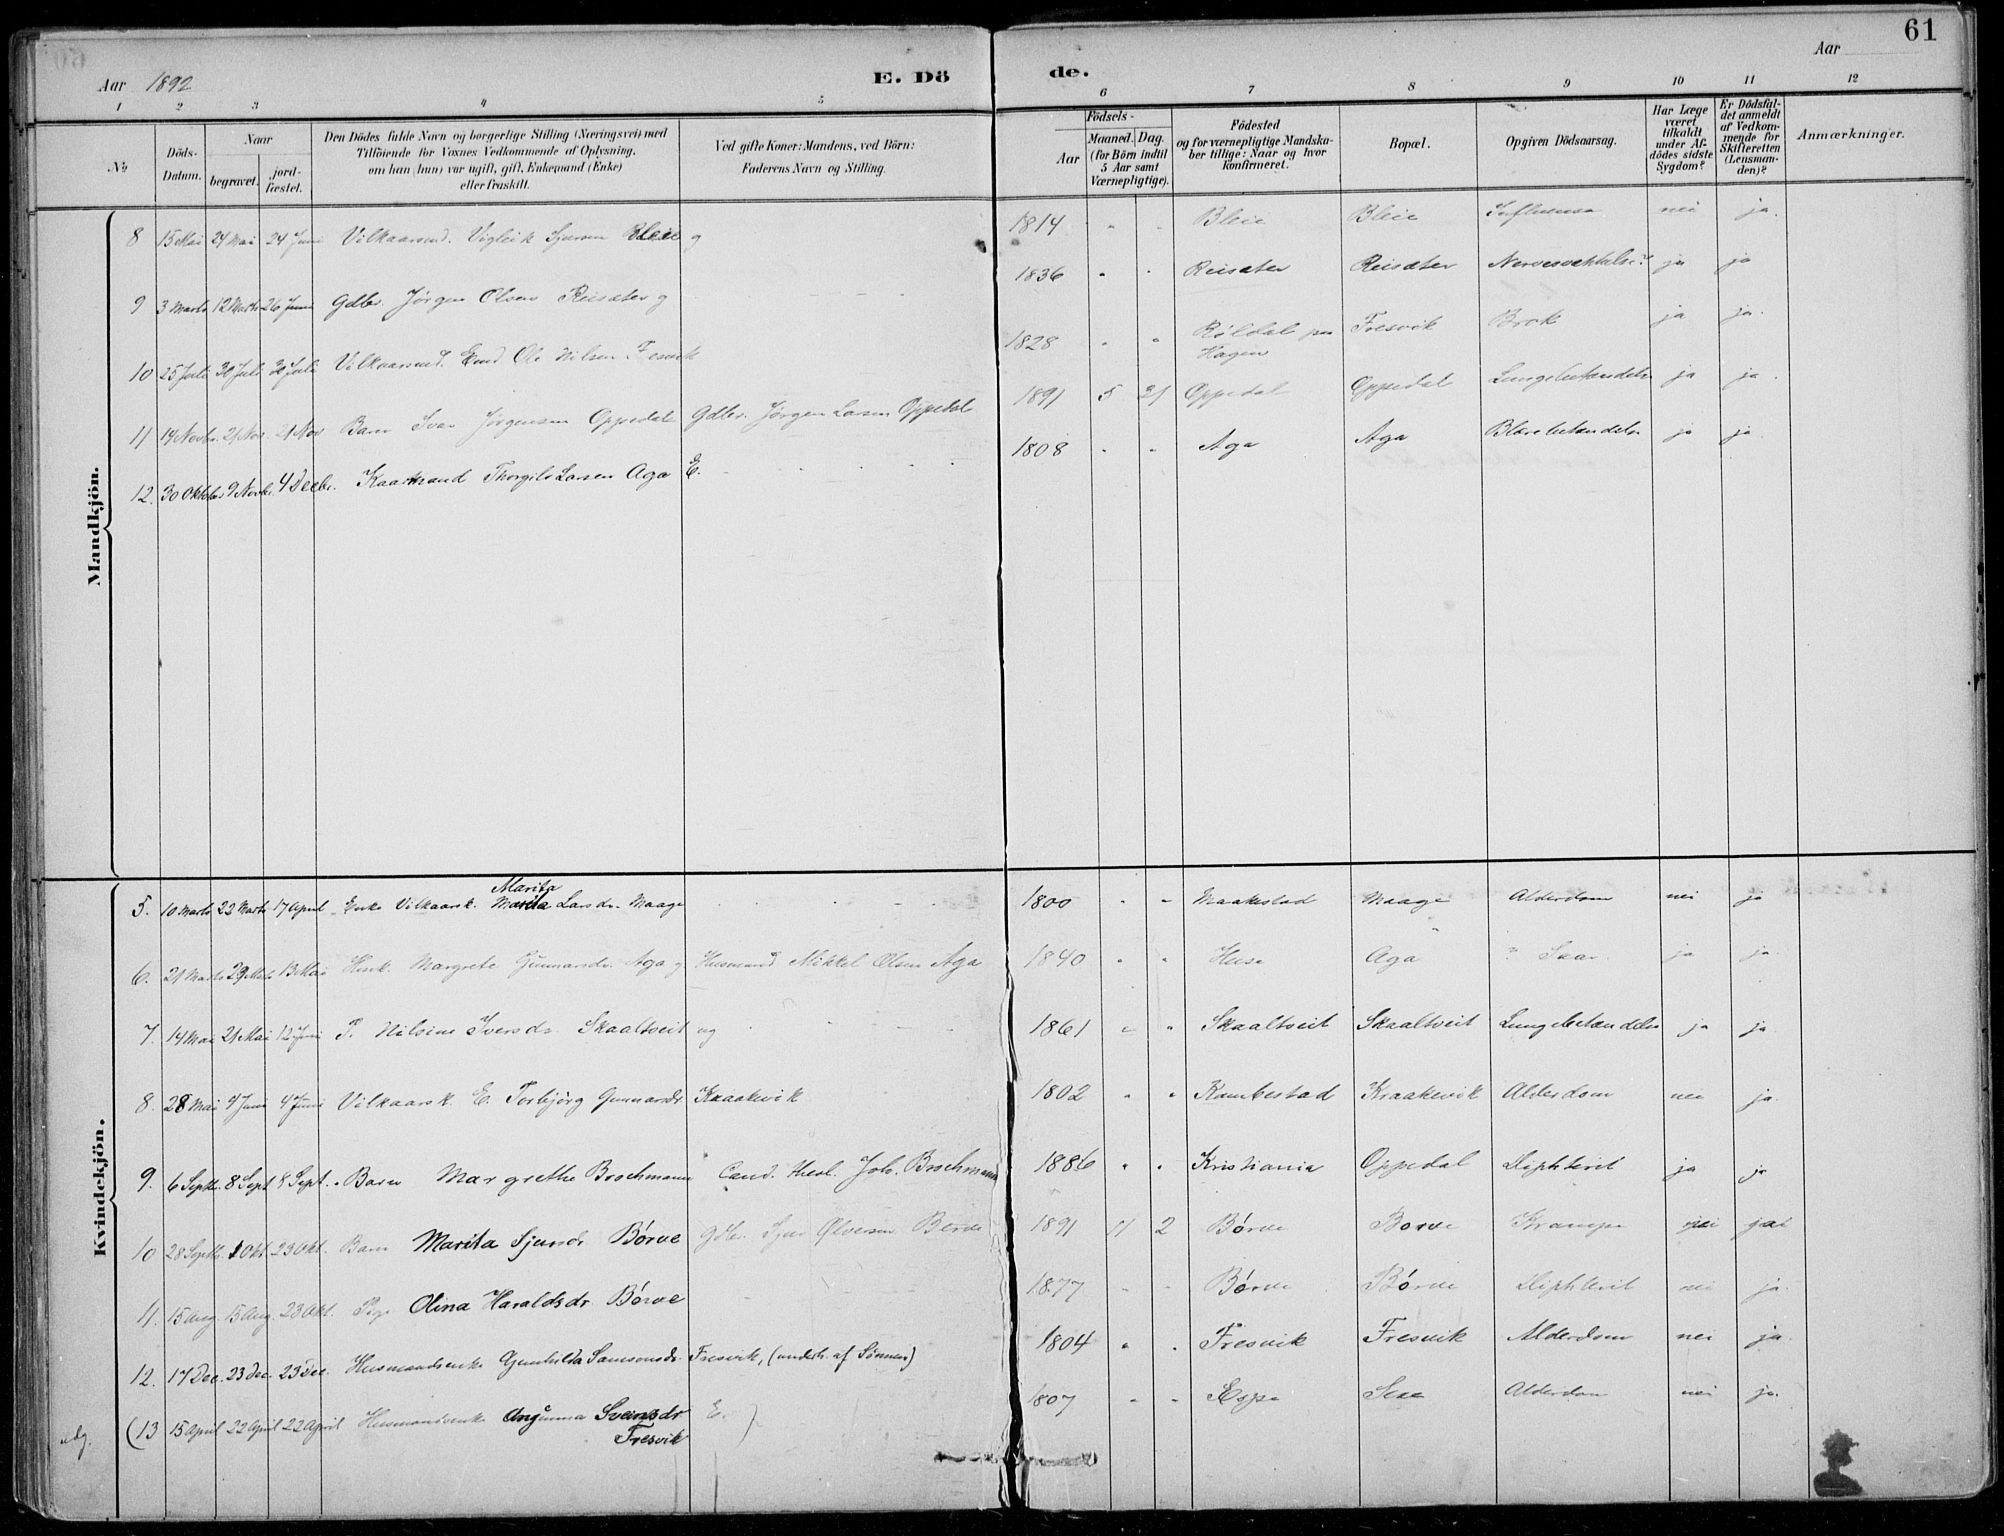 61
Aar 1892
E. Dö de.
Aar
1 2 3 4 5 6 7 8 9 10 11 12
No
Döds-Datum.
Naar
begravet.
jord-fæstet.
Den Dödes fulde Navn og borgerlige Stilling (Næringsvei) med
Tilföiende for Voxnes Vedkommende af Oplysning,
om han (hun) var ugift, gift, Enkemand (Enke)
eller fraskilt.
Ved gifte Koner: Mandens, ved Börn:
Faderens Navn og Stilling.
Födsels-
Aar
Maaned. Dag.
(for Börn indtil
5 Aar samt
Værnepligtige).
Födested
og for værnepligtige Mandska-
ber tillige: Naar og hvor
konfirmeret.
Bopæl.
Opgiven Dödsaarsag.
Har Læge
været
tilkaldt
under Af-
dödes sidste
Sygdom?
Er Dödsfal-
det anmeldt
af Vedkom-
mende for
Skifteretten
(Lensman-
den)?
Anmærkninger.
Mandkjön.
8 15 Mai 24 Mai 24 Juni Vilkaarsmd. Vigleik Sjursen Bleie g 1814 " " Bleie Bleie Influensa nei ja.
9 3 Marts 12 Marts 26 Juni Gdbr. Jørgen Olsen Reisæter g 1836 " " Reisæter Reisæter Nervesvækkelse? ja ja
10 25 Juli 30 Juli 30 Juli Vilkaarsmd. Emd Ole Nilsen Fresvik 1828 " " Røldal paa Hagen Fresvik Brok ja ja.
11 14 Novbr. 21 Nov. 21 Nov Barn Ivar Jørgensen Oppedal Gdbr. Jørgen Larsen Oppedal 1891 5 21 Oppedal Oppedal Lungebetændelse ja ja.
12. 30 Oktober 9 Novbr. 4 Decbr. Kaarmand Thorgils Larsen Aga E. 1808 " " Aga Aga Blærebetændelse ja ja.
Kvindekjön.
5. 10 Marts 22 Marts 17 April Enke Vilkaarsk. Marita Marita Larsdr. Maage 1800 " " Maakestad Maage Alderdom nei ja
6. 21 Marts 29 Mts 13 Mai Husk. Margrete Gunnarsdr. Aga g Husmand Mikkel Olsen Aga 1840 " " Huse Aga ? Saar. ja ja.
7. 14 Mai 21 Mai 12 Juni P. Nilsine Iversdr. Skaaltveit ug 1861 " " Skaaltveit Skaaltveit Lungebetændelse ja ja.
8. 28 Mai 4 Juni 4 Juni Vilkaarsk. E. Torbjörg Gunnarsdr. Kraakevik 1802 " " Kambestad Kraakevik Alderdom nei ja.
9. 6 Septbr. 8 Sept 8 Sept. Barn Margrethe Brochmann Cand. theol. Joh. Brochmann 1886 " " Kristiania Oppedal Diphterit ja ja
10 28 Septbr. 1 Okt. 23 Okt. Barn Marita Sjursdr Børve Gdbr. Sjur Ølversen Børve 1891 11 2 Børve Børve Krampe nei ja
11. 15 Aug. 15 Aug. 23 Okt. Pige Olina Haraldsdr Børve 1877 " " Børve Børve Diphterit nei ja.
12. 17 Dec. 23 Dec. 23 Dec. Husmandsenke Gunhilda Samsonsdr. Fresvik, (underh. af Sønnen) 1804 " . Fresvik Fresvik Alderdom nei ja.
(13 15 April 22 April 22 April Husmandsenke Angunna Sveinsdr Fresvik E. ) 1807 " " Espe Sexe Alderdom nei ja.